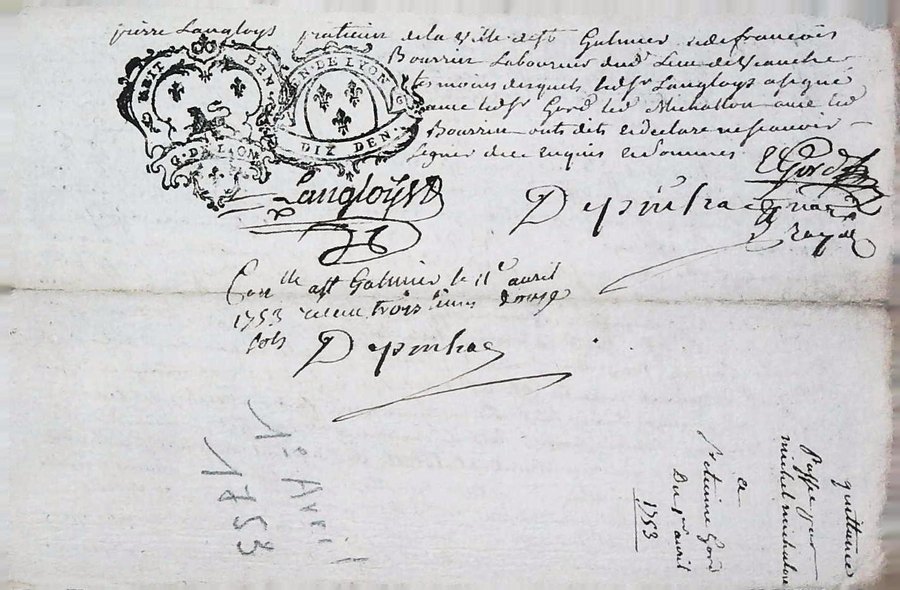 pierre Langloys praticien de la ville de st Galmier et de francois
Bourrin Laboureur du Lieu de
temoins lesquels led sr Langloys a signé
avec led sr Gord led Michallon avec led
Bourrin ont dit et declaré ne scavoir
signer de ce enquis et sommes
PETIT DEN.
G. DE LYON
G.ON.DE LYON
DIX DEN.
EGord
Langloys
Depinhac
nore
Royal
Conlle a st Galmier le 11e avril
1753 recu trois livres douze
sols
Depinhac
1er Avril
1753
quittance
Passée par
michel michalon
a
Etienne Gord
Du 1er avril
1753